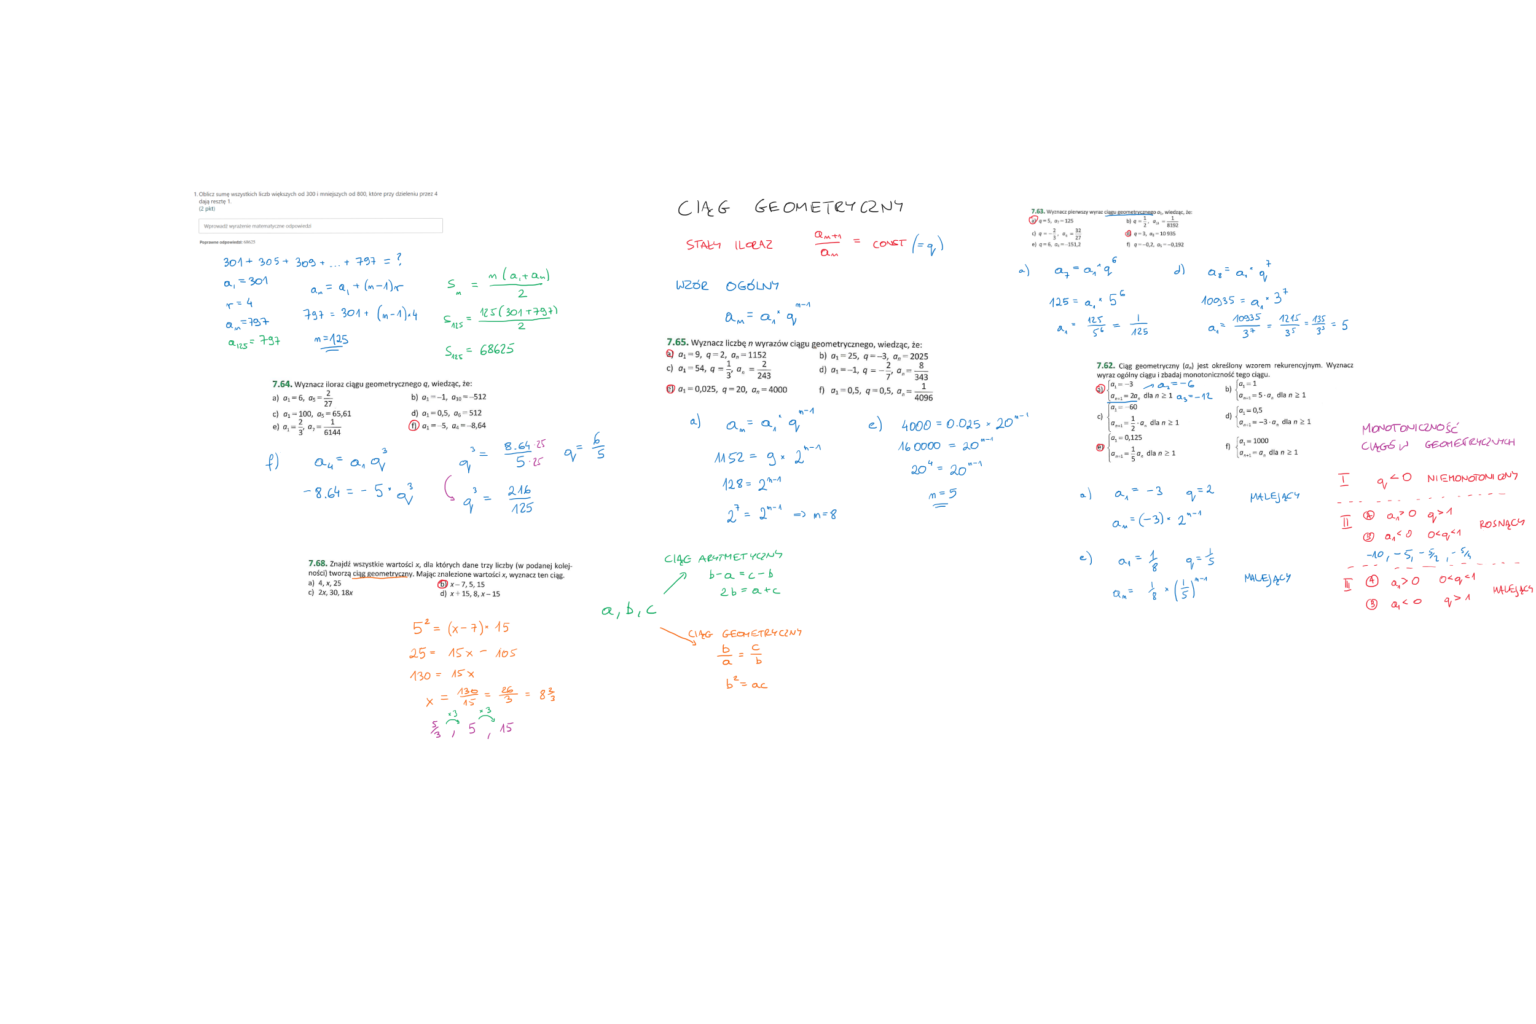 1. Oblicz sumę wszystkich liczb większych od 300 i mniejszych od 800, które przy dzieleniu przez 4
dają resztę 1.
(2 pkt)
Wprowadź wyrażenie matematyczne odpowiedzi
Poprawne odpowiedzi: 68625
301 + 305 + 309 + ... + 797 = ?
a₁ = 301
r = 4
aₙ = 797
a₁₂₅ = 797
aₙ = a₁ + (n-1)r
797 = 301 + (n-1)·4
n = 125
Sₙ = n(a₁+aₙ)/2
S₁₂₅ = 125(301+797)/2
S₁₂₅ = 68625
7.64. Wyznacz iloraz ciągu geometrycznego q, wiedząc, że:
a) a₁ = 6, a₅ = 2/27
b) a₁ = -1, a₁₀ = -512
c) a₁ = 100, a₅ = 65,61
d) a₁ = 0,5, a₆ = 512
e) a₁ = 2/3, a₇ = 1/6144
f) a₁ = -5, a₄ = -8,64
f) a₄ = a₁ q³
-8.64 = -5 · q³
q³ = 8.64 ·25 / 5 ·25
q³ = 216/125
q = 6/5
7.68. Znajdź wszystkie wartości x, dla których dane trzy liczby (w podanej kolej-
ności) tworzą ciąg geometryczny. Mając znalezione wartości x, wyznacz ten ciąg.
a) 4, x, 25
b) x - 7, 5, 15
c) 2x, 30, 18x
d) x + 15, 8, x - 15
5² = (x-7) · 15
25 = 15x - 105
130 = 15x
x = 130/15 = 26/3 = 8 2/3
·3 ·3
5/3, 5, 15
CIĄG GEOMETRYCZNY
STAŁY ILORAZ aₙ₊₁/aₙ = CONST (=q)
WZÓR OGÓLNY
aₙ = a₁ · qⁿ⁻¹
7.65. Wyznacz liczbę n wyrazów ciągu geometrycznego, wiedząc, że:
a) a₁ = 9, q = 2, aₙ = 1152
b) a₁ = 25, q = -3, aₙ = 2025
c) a₁ = 54, q = 1/3, aₙ = 2/243
d) a₁ = -1, q = -2/7, aₙ = 8/343
e) a₁ = 0,025, q = 20, aₙ = 4000
f) a₁ = 0,5, q = 0,5, aₙ = 1/4096
a) aₙ = a₁ · qⁿ⁻¹
1152 = 9 · 2ⁿ⁻¹
128 = 2ⁿ⁻¹
2⁷ = 2ⁿ⁻¹ => n = 8
e) 4000 = 0.025 · 20ⁿ⁻¹
160000 = 20ⁿ⁻¹
20⁴ = 20ⁿ⁻¹
n = 5
CIĄG ARYTMETYCZNY
b-a = c-b
2b = a+c
a, b, c
CIĄG GEOMETRYCZNY
b/a = c/b
b² = ac
7.63. Wyznacz pierwszy wyraz ciągu geometrycznego aₙ, wiedząc, że:
a) q = 5, a₇ = 125
c) q = -2/3, a₆ = 32/27
d) q = 3, a₈ = 10 935
e) q = 6, a₅ = -151,2
f) q = -0,2, a₅ = -0,192
a) a₇ = a₁ · q⁶
125 = a₁ · 5⁶
a₁ = 125/5⁶ = 1/125
d) a₈ = a₁ · q⁷
10935 = a₁ · 3⁷
a₁ = 10935/3⁷ = 1215/3⁵ = 135/3³ = 5
7.62. Ciąg geometryczny (aₙ) jest określony wzorem rekurencyjnym. Wyznacz
wyraz ogólny ciągu i zbadaj monotoniczność tego ciągu.
a) a₁ = -3 a₂ = -6
aₙ₊₁ = 2aₙ dla n ≥ 1 a₃ = -12
b) a₁ = 1
aₙ₊₁ = 5 · aₙ dla n ≥ 1
c) a₁ = -60
aₙ₊₁ = 1/2 · aₙ dla n ≥ 1
d) a₁ = 0,5
aₙ₊₁ = -3 · aₙ dla n ≥ 1
e) a₁ = 0,125
aₙ₊₁ = 1/5 aₙ dla n ≥ 1
f) a₁ = 1000
aₙ₊₁ = aₙ dla n ≥ 1
a) a₁ = -3 q = 2 MALEJĄCY
aₙ = (-3) · 2ⁿ⁻¹
e) a₁ = 1/8 q = 1/5 MALEJĄCY
aₙ = 1/8 · (1/5)ⁿ⁻¹
MONOTONICZNOŚĆ
CIĄGÓW GEOMETRYCZNYCH
I q < 0 NIEMONOTONICZNY
II a₁ > 0 q > 1 ROSNĄCY
a₁ < 0 0 < q < 1
-10, -5, -5/2, -5/4
III a₁ > 0 0 < q < 1 MALEJĄCY
a₁ < 0 q > 1